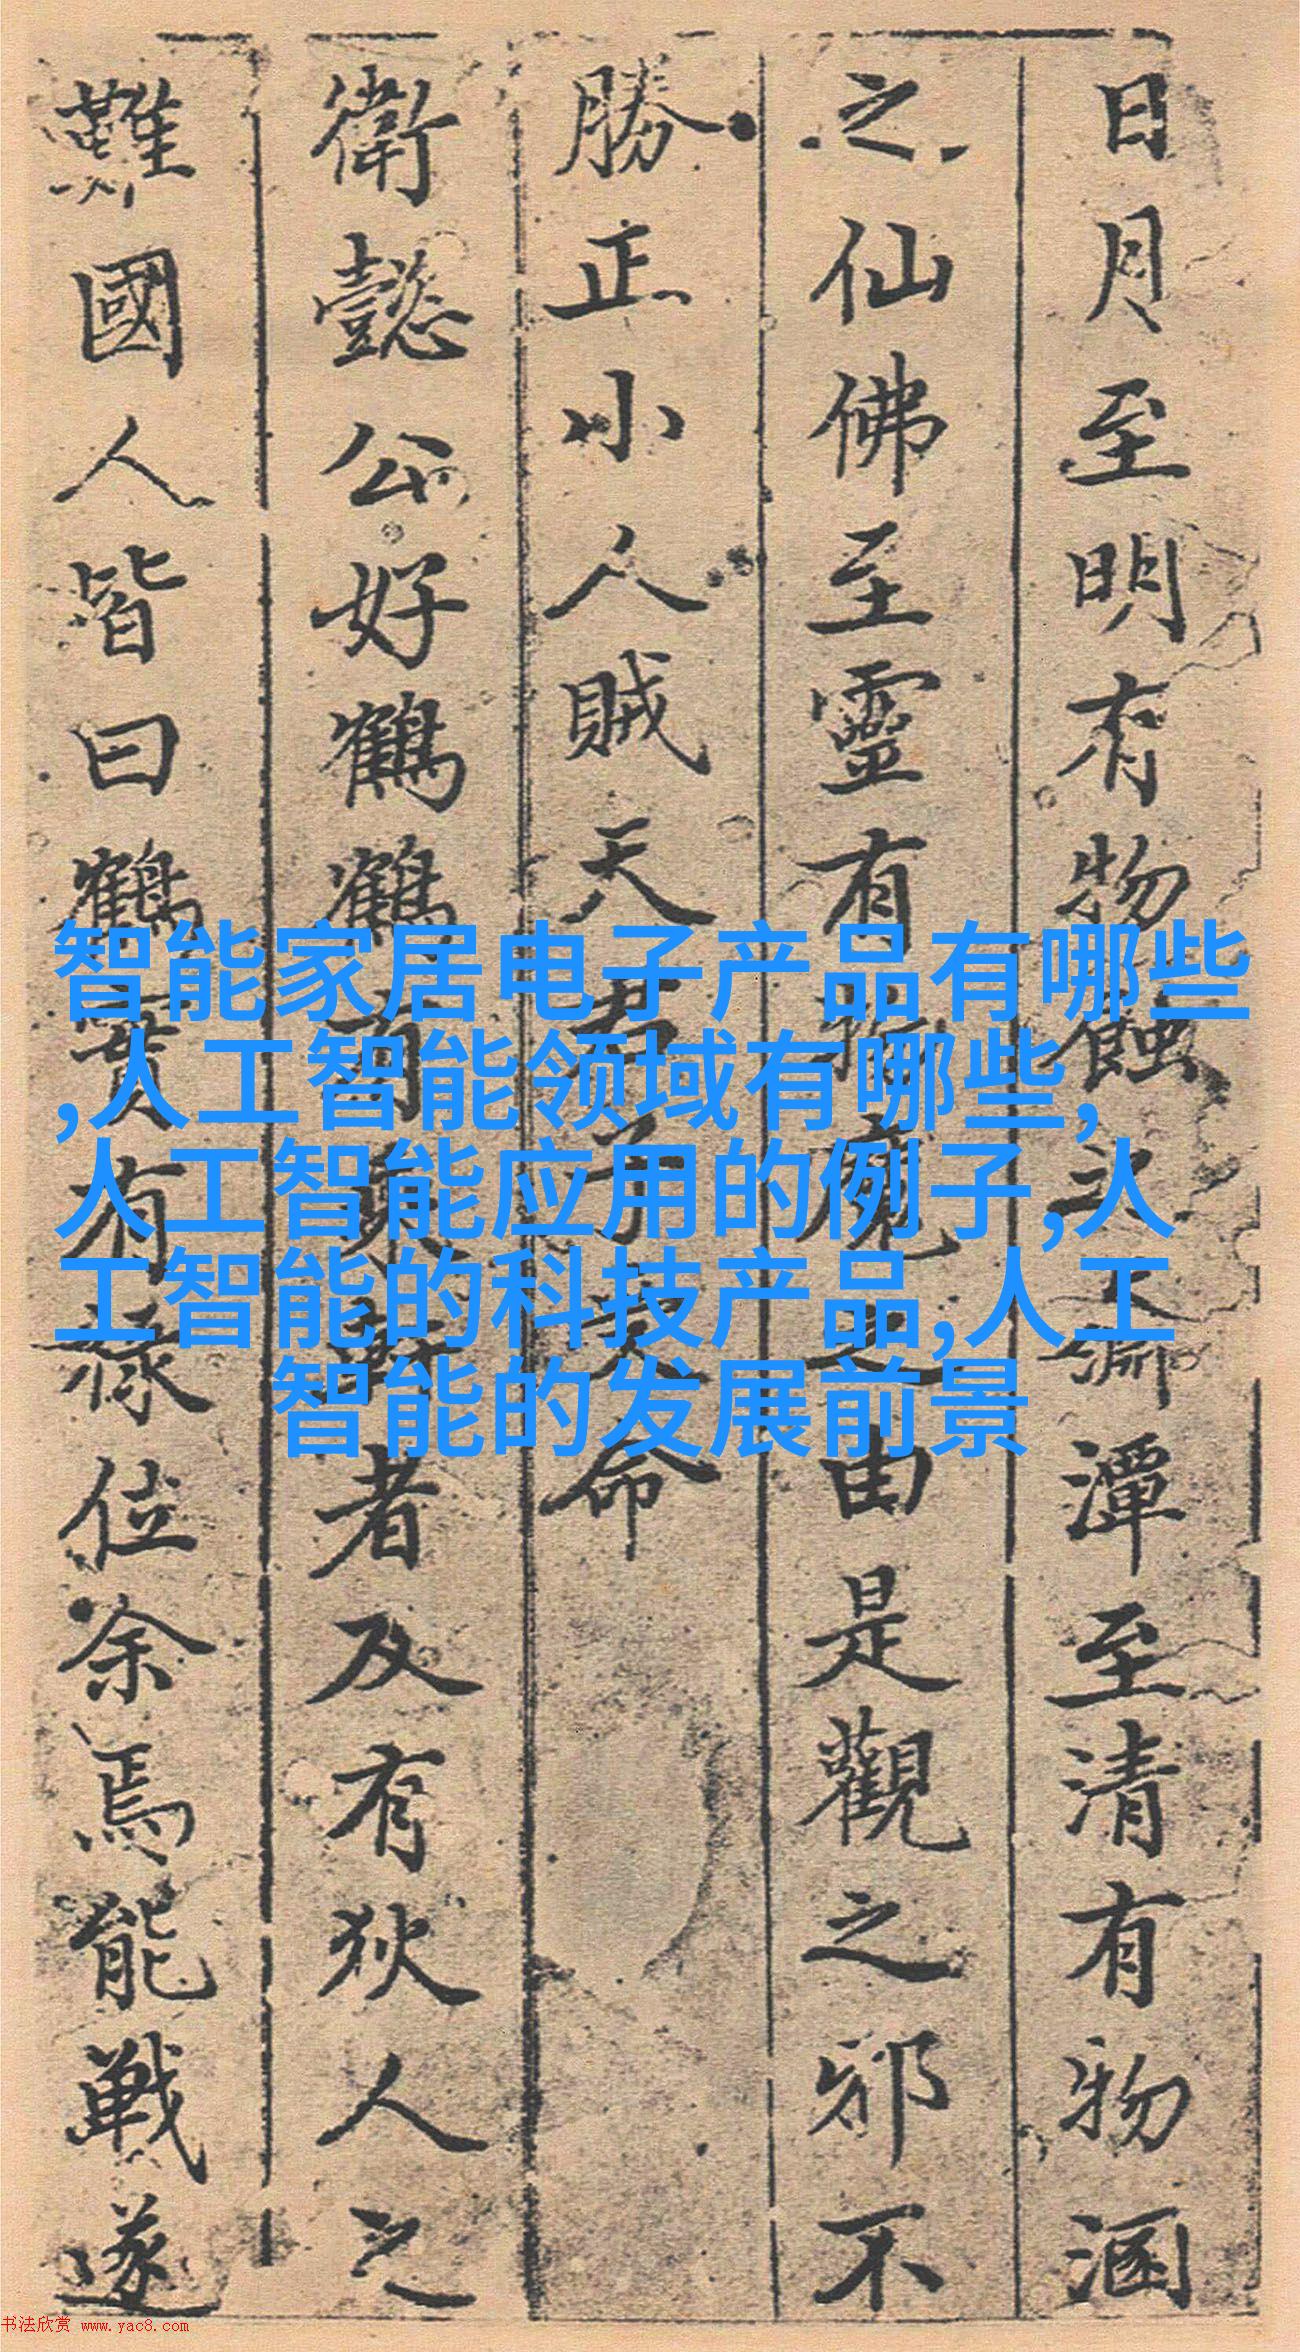 日月至明有物蝕之淵潭至清有物溷
之仙佛至靈有物魔之由是觀之邪不
勝正小人賊天君子夫命
衛懿公好鶴鶴有乘軒者及有狄人之
難國人皆曰鶴實有祿位余焉能戰遂
智能家居电子产品有哪些
,人工智能领域有哪些,
人工智能应用的例子,人
工智能的科技产品,人工
智能的发展前景
书法欣赏 www.yac8.com